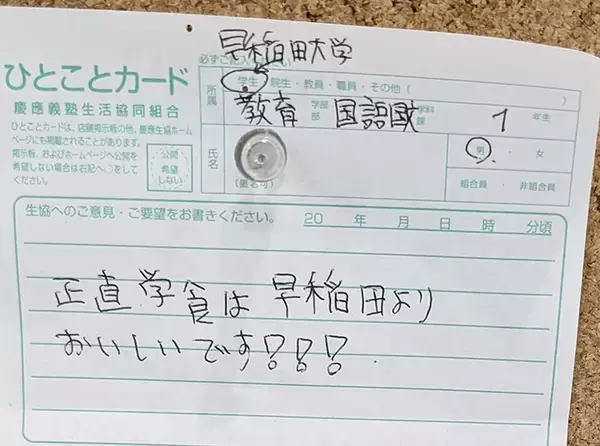 早稲田大学
必ずご記入ください
ひとことカード
慶應義塾生活協同組合
ひとことカードは、店舗掲示板の他、慶應生協ホームページにも掲載されることがあります。
掲示板、およびホームページへ公開を希望しない場合は右記へ○をしてください。
公開
希望
しない
所属
学生・院生・教員・職員・その他(  )
教育 学部 国語国文 学科 1 年生
部 課
氏名
(匿名可)
男・女
組合員・非組合員
生協へのご意見・ご要望をお書きください。 20 年 月 日 時 分頃
正直学食は早稲田より
おいしいです!!!